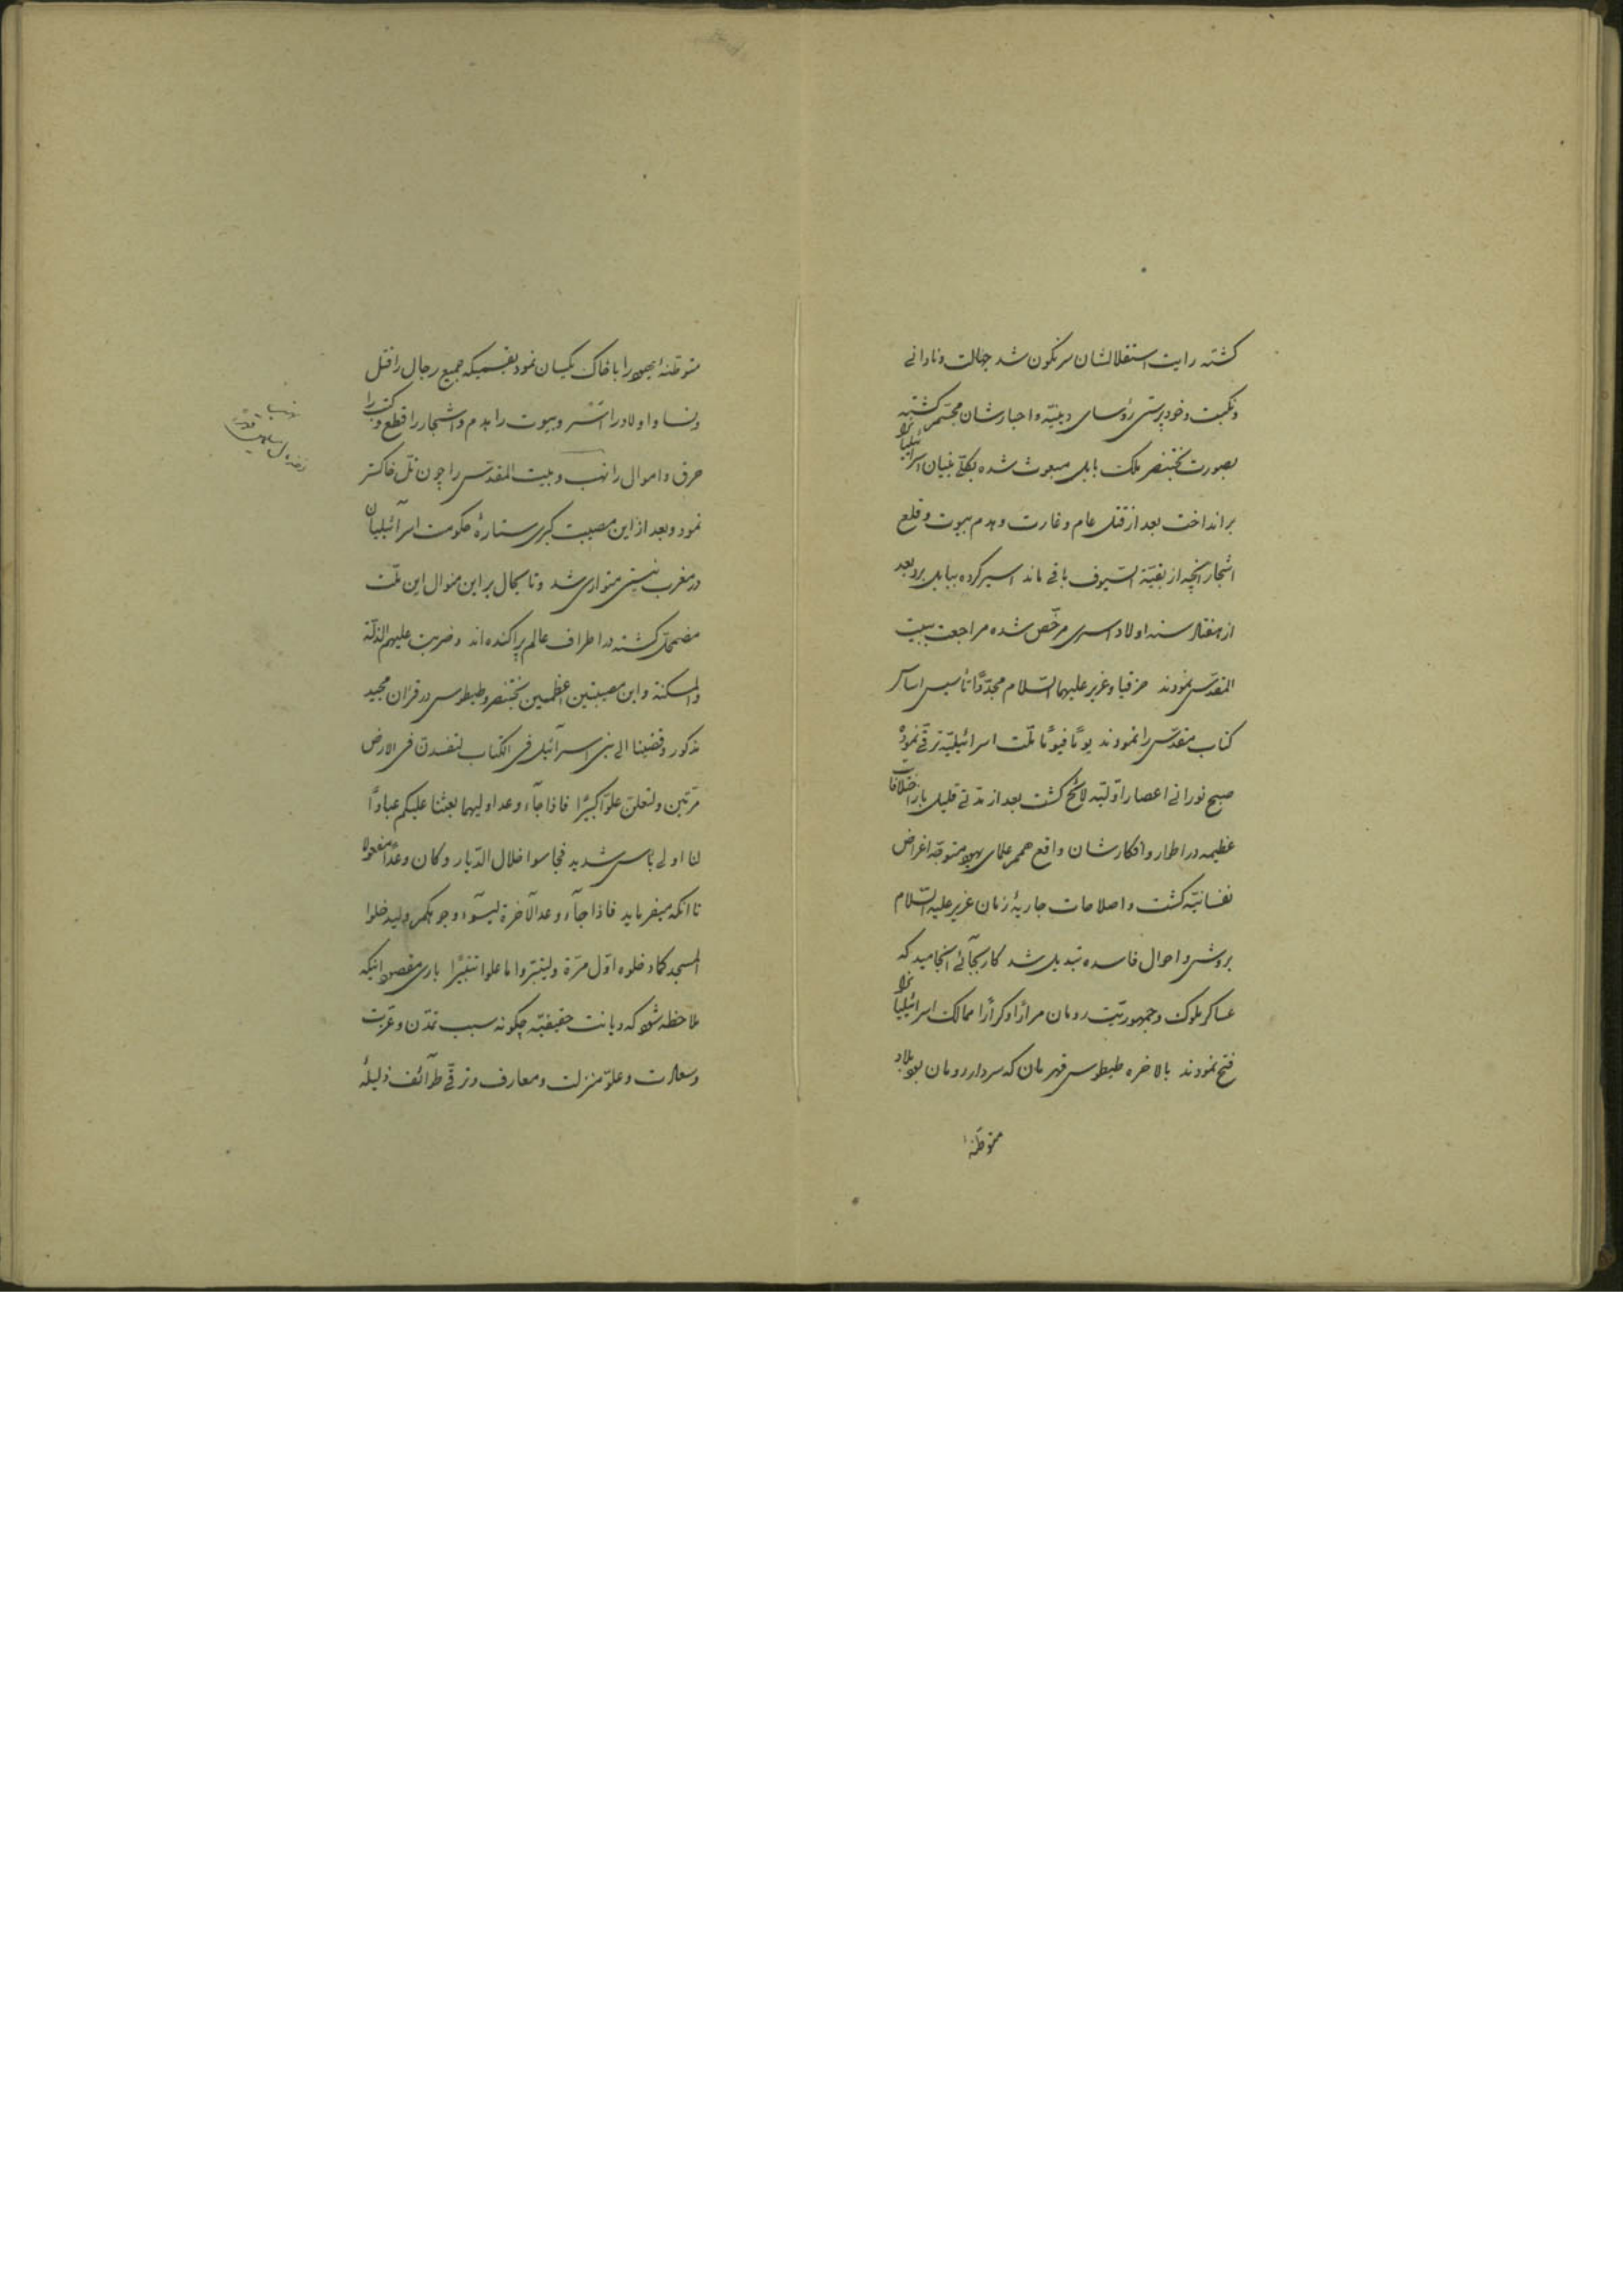 کشته رایت استقلالشان سرنگون شد جهالت و نادانی
و نکبت و خودپرستی رؤسای دینیّه و احبارشان مجسّم کشته
بصورت بختنصر ملک بابل مبعوث شده بکلّی بنیان اسرائیلیانرا
برانداخت بعد از قتل عام و غارت و هدم بیوت و قلع
اشجار آنچه از بقیّة السّیوف باقی ماند اسیر کرده ببابل برد بعد
از هفتاد سنه اولاد اسری مرخّص شده مراجعت ببیت
المقدّس نمودند حزقیا و عزیر علیهما السّلام مجدّدًا تأسیس اساس
کتاب مقدّس را نمودند یومًا فیومًا ملّت اسرائیلیّه ترقّی نموده
صبح نورانی اعصار اوّلیّه لائح کشت بعد از مدّتی قلیل باز اختلافات
عظیمه در اطوار و افکارشان واقع همم علمای یهود متوجّه اغراض
نفسانیّه کشت و اصلاحات جاریهٔ زمان عزیر علیه السّلام
بروش و احوال فاسده تبدیل شد کار بجآئی انجامید که
عساکر ملوک و جمهوریّت رومان مرارًا و کرارًا ممالک اسرائیلیانرا
فتح نمودند بالاخره طیطوس قهرمان که سردار رومان بود بلاد
متوطّنهٔ
متوطّنهٔ یهود را با خاک یکسان نمود بقسمیکه جمیع رجال را قتل
و نسا و اولاد را اسر و بیوت را هدم و اشجار را قطع و کتب را
حرق و اموال را نهب و بیت المقدّس را چون تلّ خاکستر
نمود و بعد از این مصیبت کبری ستارهٔ حکومت اسرآئیلیان
در مغرب نیستی متواری شد و تا بحال بر این منوال این ملّت
مضمحلّ کشته در اطراف عالم پراکنده اند و ضربت علیهم الذلّة
والمسکنة و این مصیبتین اعظمین بختنصر و طیطوس در قرآن مجید
مذکور و قضینا الی بنی اسرآئیل فی الکتاب لتفسدنّ فی الارض
مرّتین و لتعلنّ علوًّا کبیرًا فاذا جآء وعد اولیهما بعثنا علیکم عبادًا
لنا اولی بأس شدید فجاسوا خلال الدّیار و کان وعدًا مفعولا
تا آنکه میفرماید فاذا جآء وعد الآخرة لیسوٓءا وجوهکم و لیدخلوا
المسجد کما دخلوه اوّل مرّة و لیتبّروا ما علوا تتبیرًا باری مقصود اینکه
ملاحظه شود که دیانت حقیقیّه چکونه سبب تمدّن و عزّت
و سعادت و علوّ منزلت و معارف و ترقّی طوآئف ذلیله